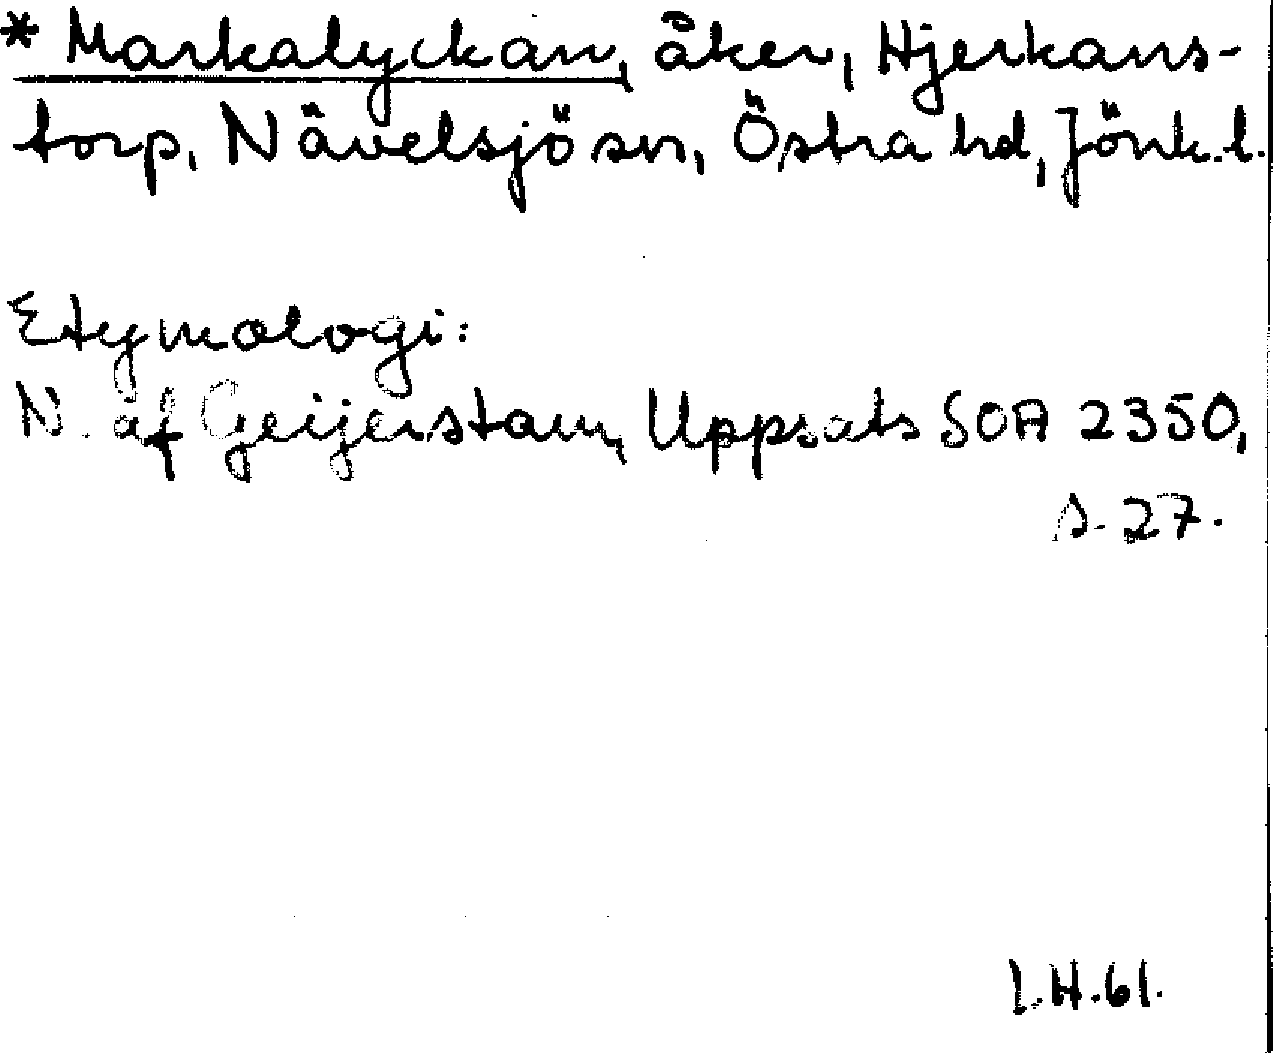 * Markalyckan, åker, Hjerkans-
torp, Nävelsjö sn, Östra hd, Jönk. l.
Etymologi:
N. af Geijerstam, Uppsats SOA 2350,
s. 27.
I.H.61.